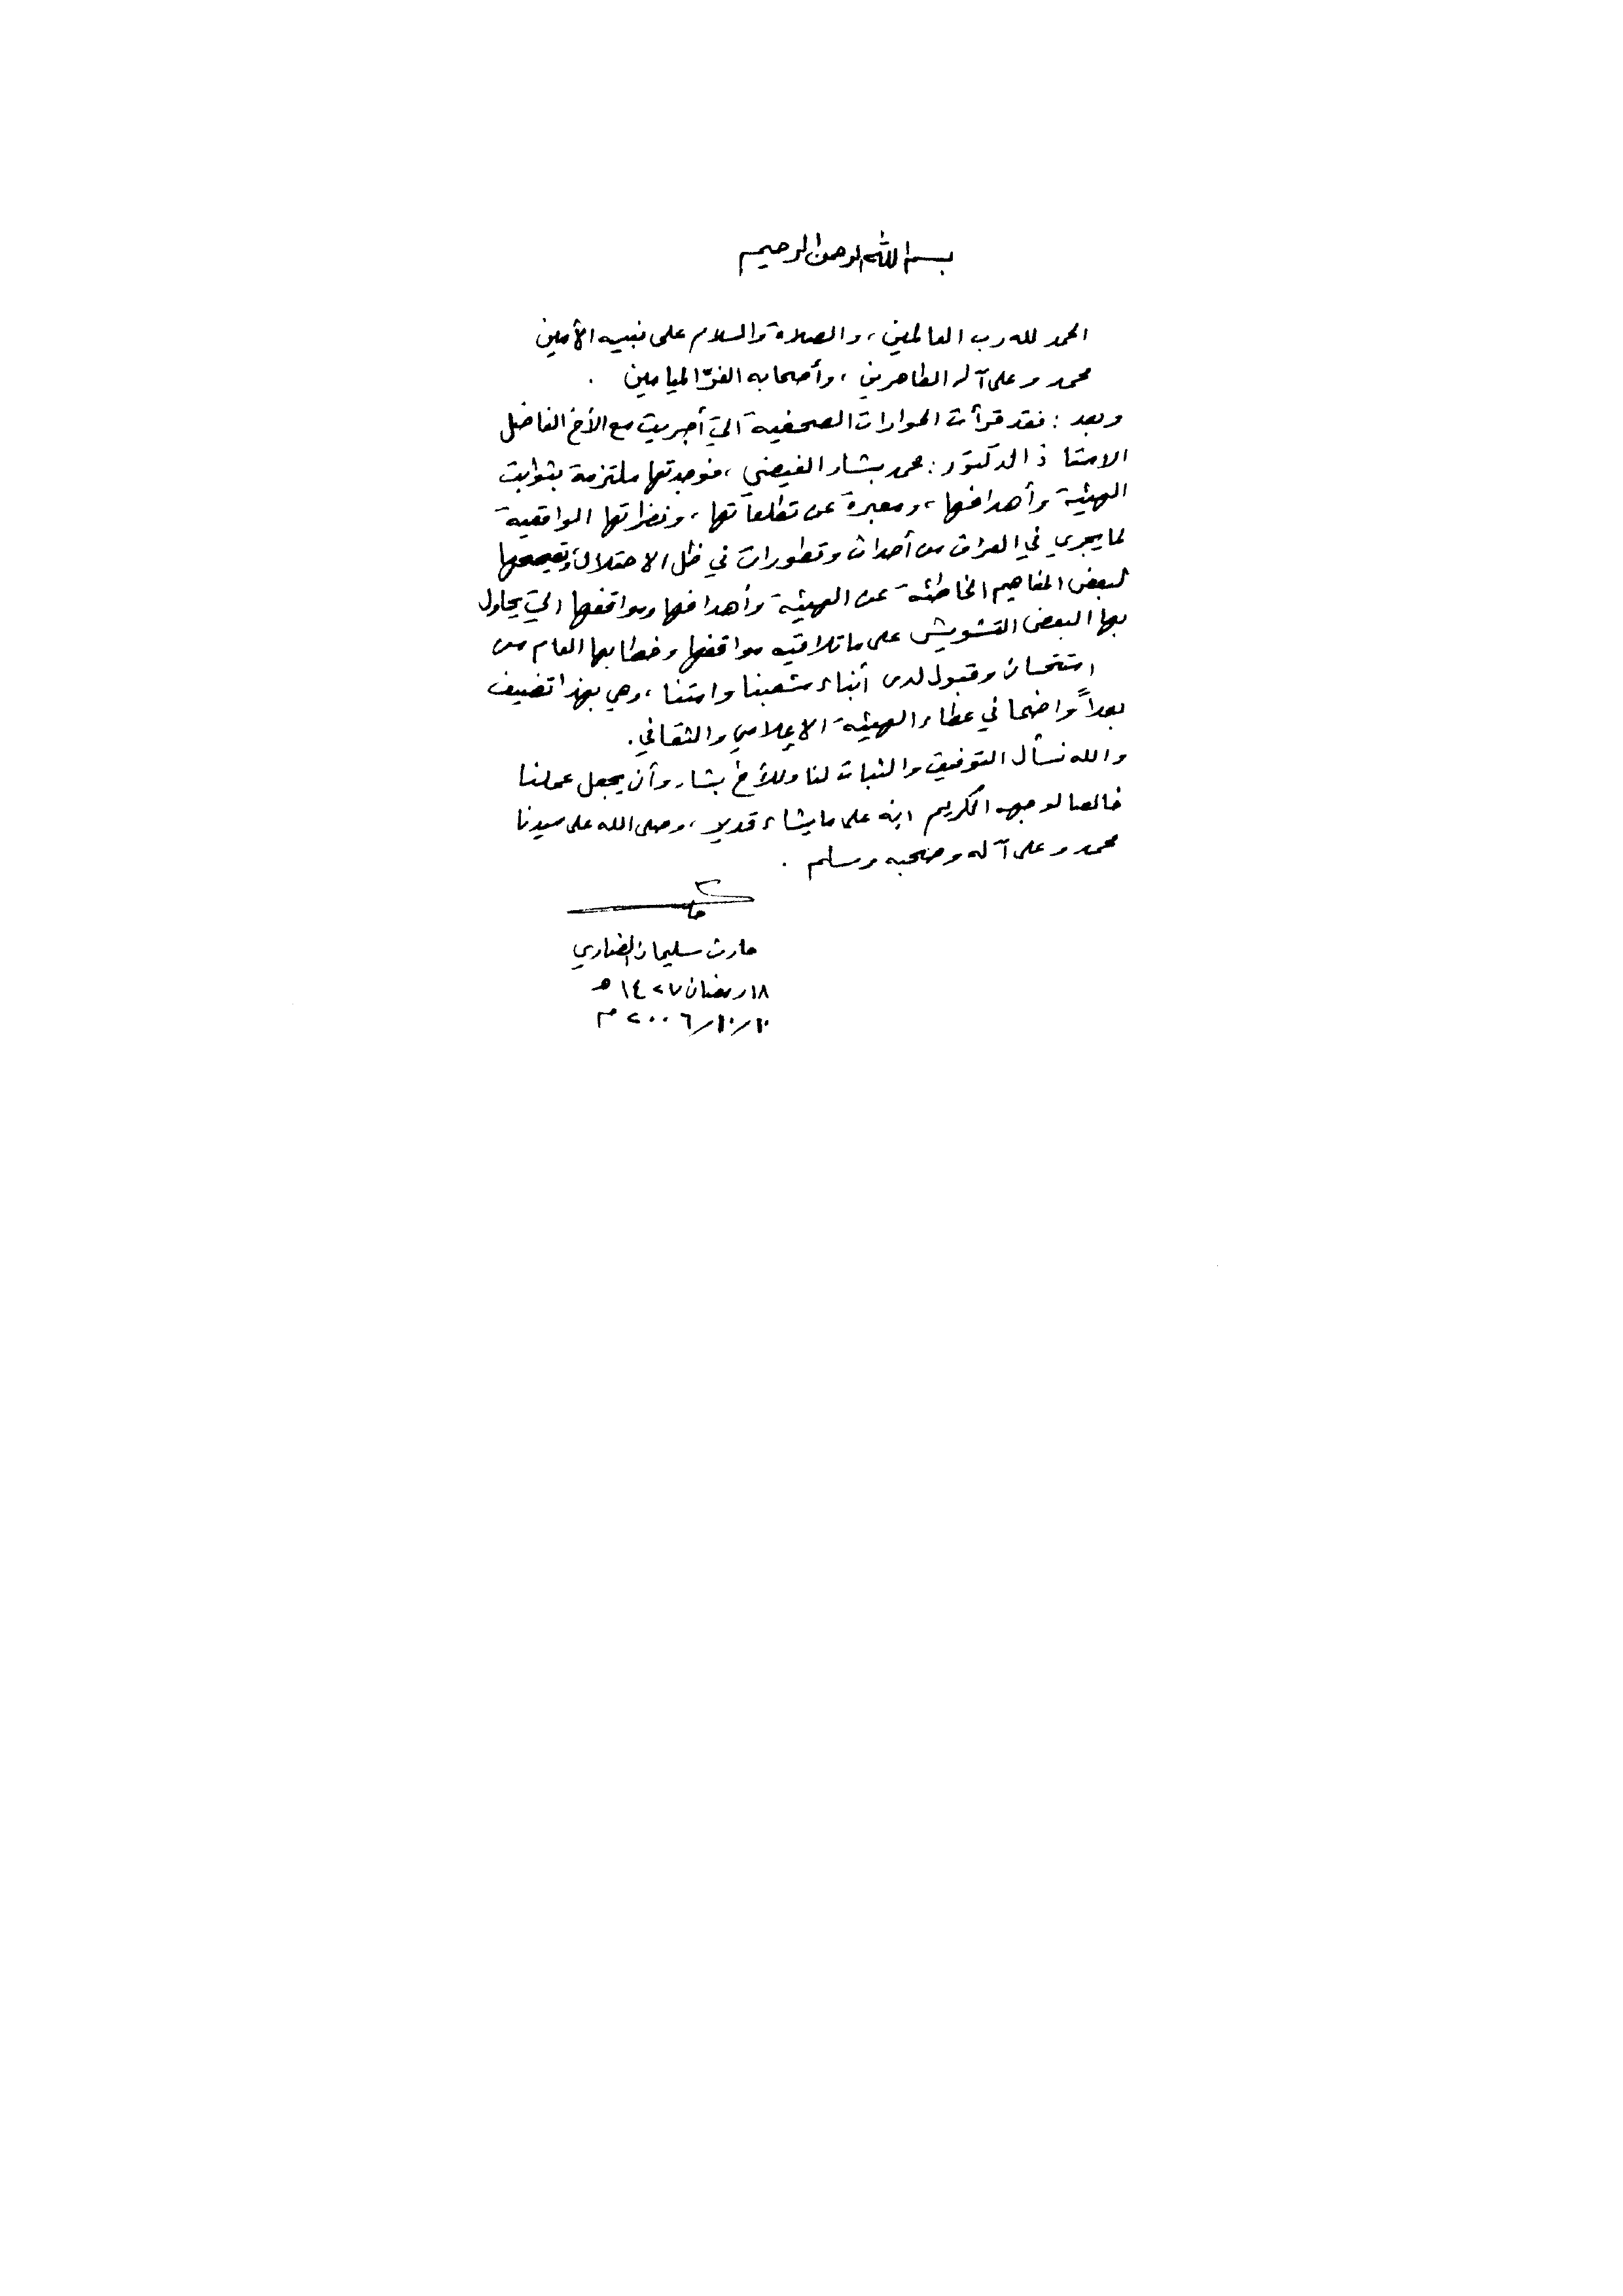 بسم الله الرحمن الرحيم
الحمد لله رب العالمين ، والصلاة والسلام على نبيه الأمين
محمد وعلى آله الطاهرين ، وأصحابه الغرّ الميامين .
وبعد : فقد قرأت الحوارات الصحفية التي أجريت مع الأخ الفاضل
الاستاذ الدكتور : محمد بشار الفيضي ، فوجدتها ملتزمة بثوابت
الهيئة وأهدافها ، ومعبرة عن تطلعاتها ، ونظراتها الواقعية
لما يجري في العراق من أحداث وتطورات في ظل الاحتلال وتصحيحها
لبعض المفاهيم الخاطئة عن الهيئة وأهدافها ومواقفها التي يحاول
بها البعض التشويش على ما تلاقيه مواقفها وخطابها العام من
استحسان وقبول لدى أبناء شعبنا وامتنا ، وهي بهذا تضيف
بعداً واضحا في عطاء الهيئة الإعلامي والثقافي .
والله نسأل التوفيق والثبات لنا وللأخ بشار وأن يجعل عملنا
خالصا لوجهه الكريم انه على ما يشاء قدير ، وصلى الله على سيدنا
محمد وعلى آله وصحبه وسلم .
حارث سليمان الضاري
١٨ رمضان ١٤٢٧ هـ
١٠/١٠/٢٠٠٦ م